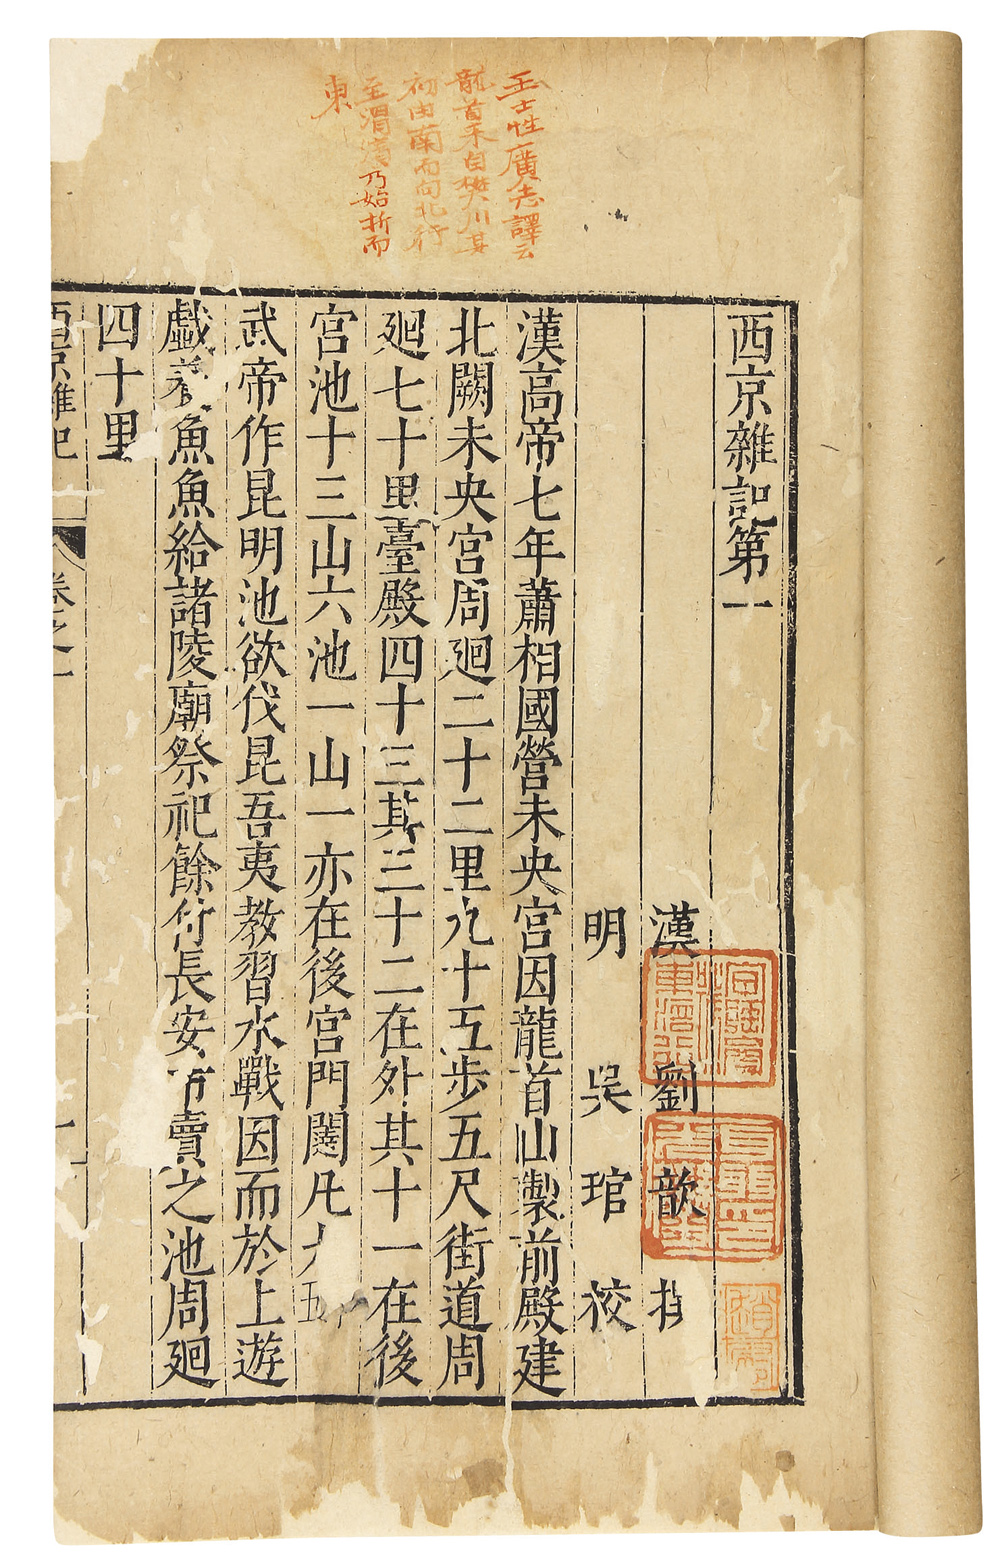 王士性廣志譯云
龍首來自樊川其
初由南而向北行
至渭濱乃始折而
東
西京雜記第一
漢 劉 歆
明 吳 琯 校
漢高帝七年蕭相國營未央宮因龍首山製前殿建
北闕未央宮周廻二十二里九十五步五尺街道周
廻七十里臺殿四十三其三十二在外其十一在後
宮池十三山六池一山一亦在後宮門闥凡九十五
武帝作昆明池欲伐昆吾夷教習水戰因而於上遊
戲養魚魚給諸陵廟祭祀餘付長安市賣之池周廻
四十里
西京雜記
卷之一
一